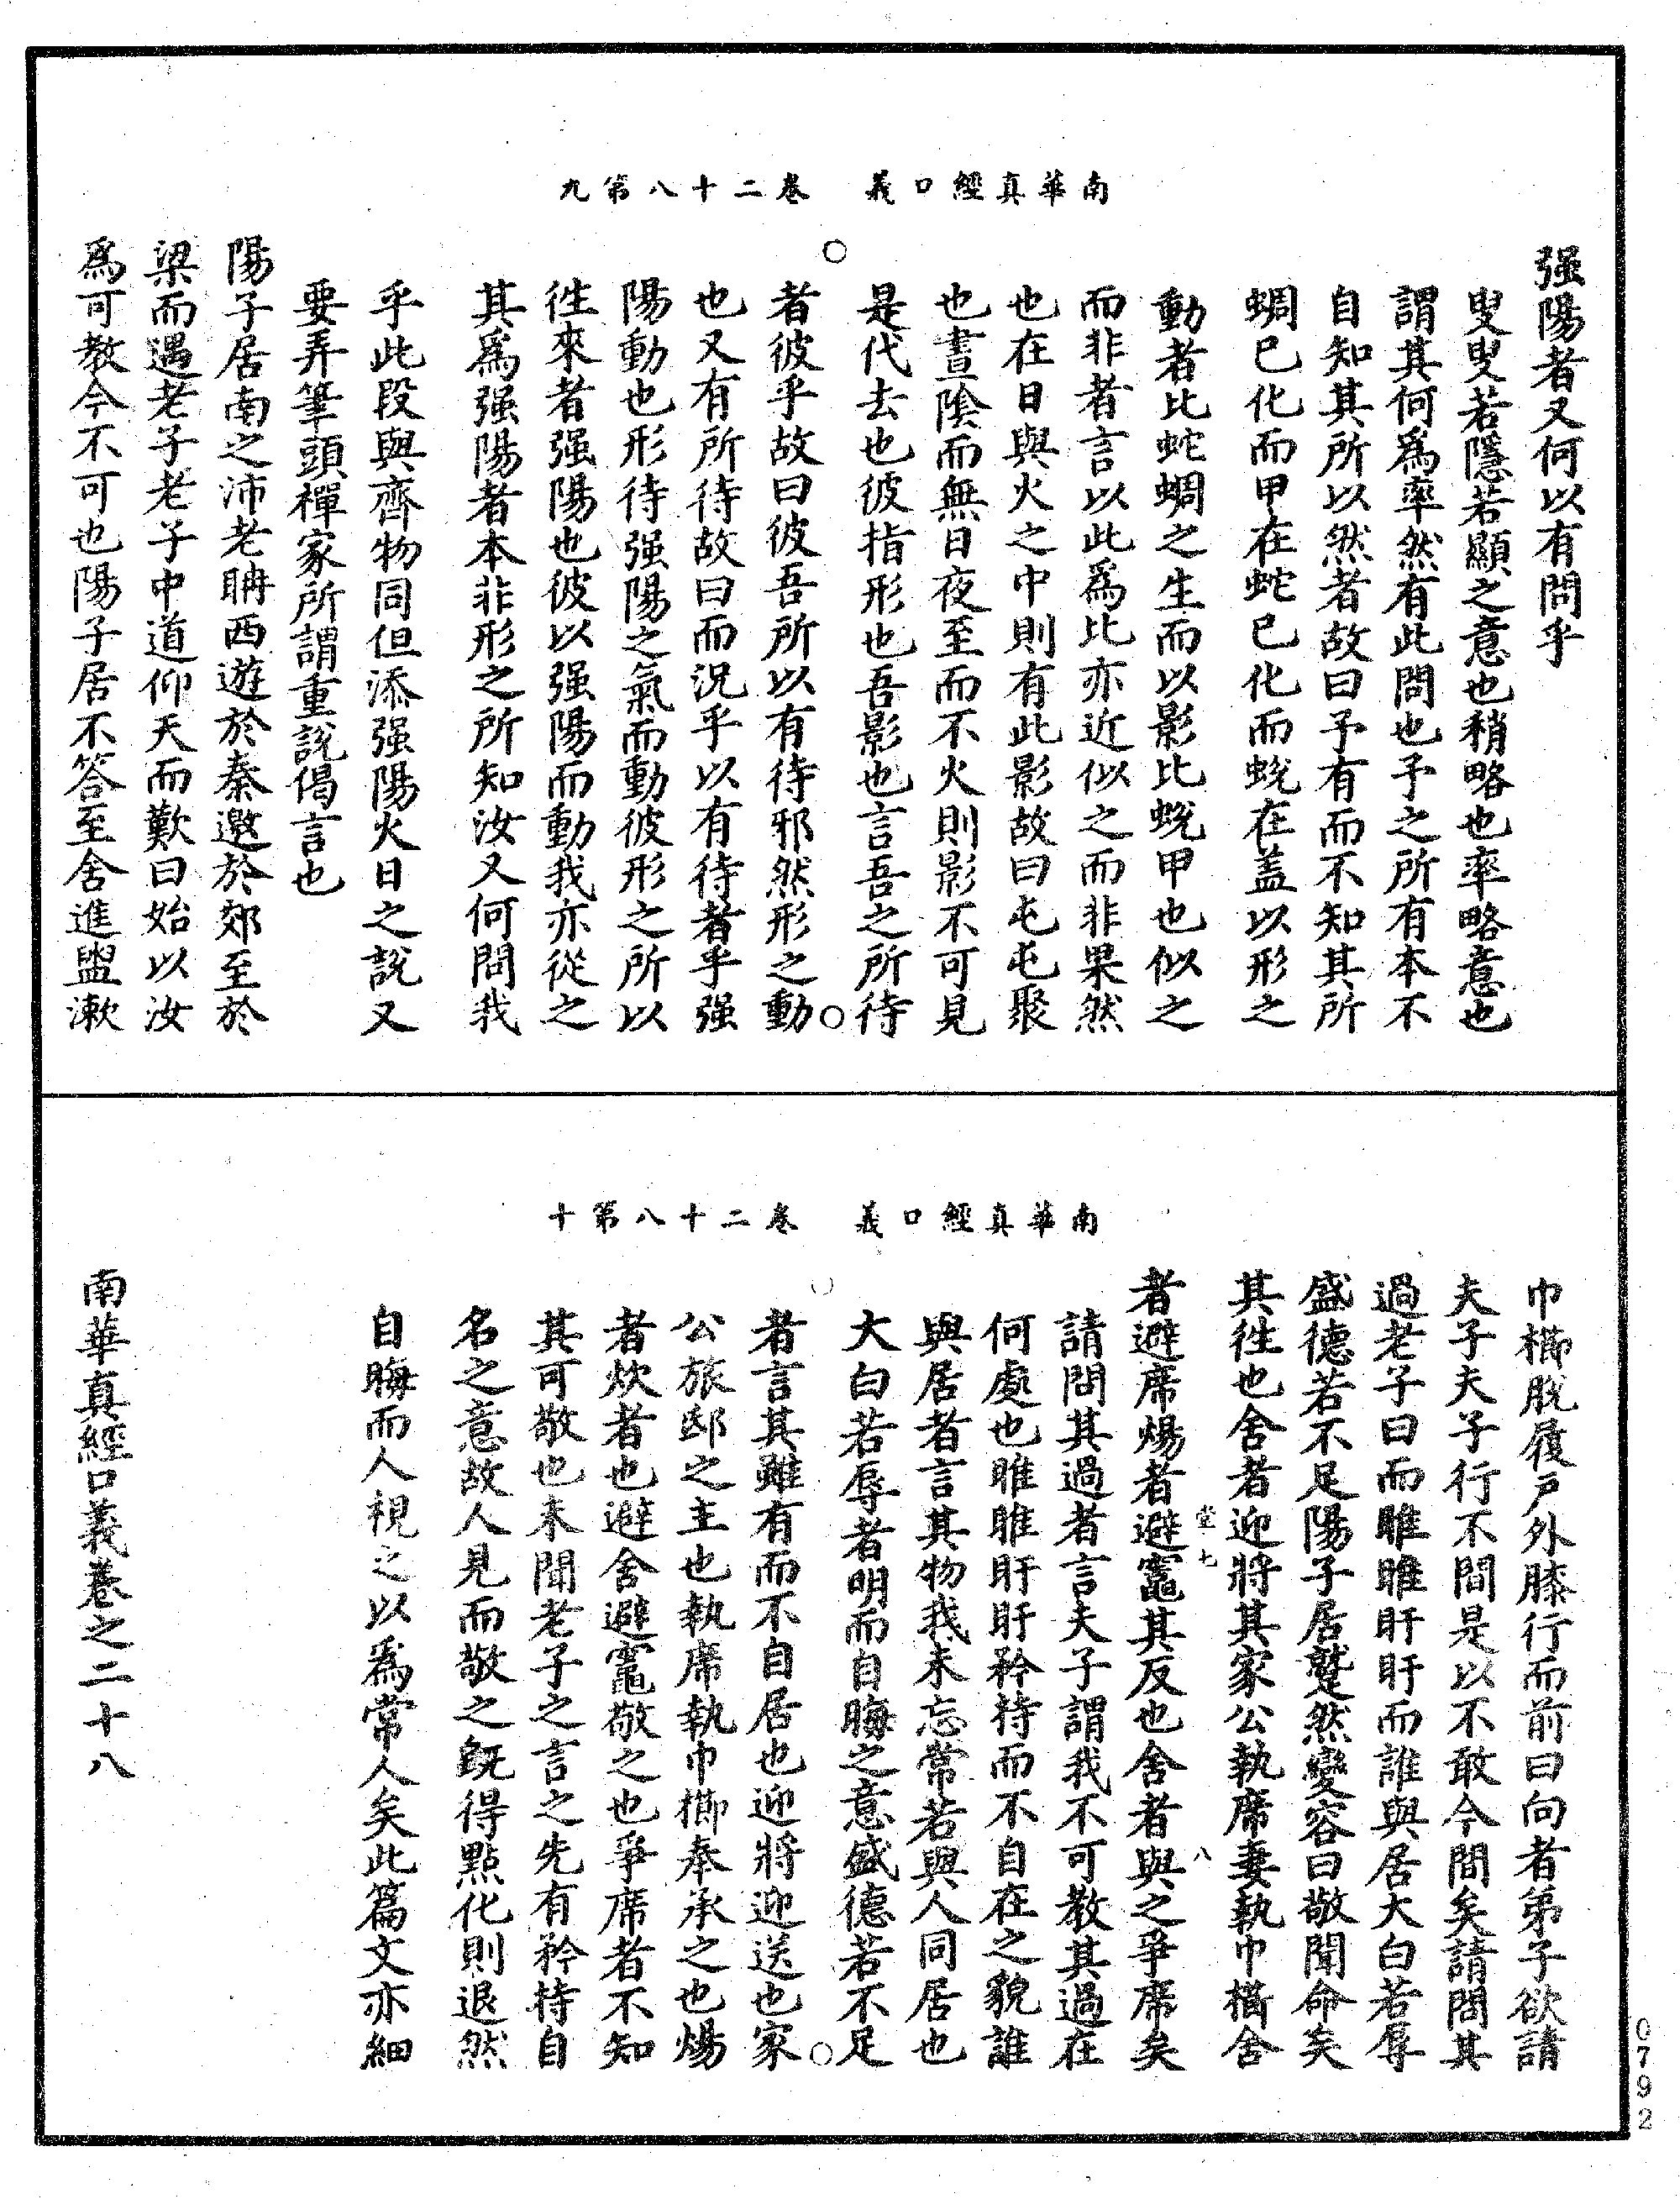 南華真經口義　卷二十八第九
强陽者又何以有問乎
叟叟若隱若顯之意也稍略也率略意也
謂其何爲率然有此問也予之所有本不
自知其所以然者故曰予有而不知其所
蜩巳化而甲在蛇巳化而蛻在盖以形之
動者比蛇蜩之生而以影比蛻甲也似之
而非者言以此爲比亦近似之而非果然
也在日與火之中則有此影故曰屯屯聚
也晝陰而無日夜至而不火則影不可見
是代去也彼指形也吾影也言吾之所待
者彼乎故曰彼吾所以有待邪然形之動
也又有所待故曰而況乎以有待者乎强
陽動也形待强陽之氣而動彼形之所以
徃來者强陽也彼以强陽而動我亦從之
其爲强陽者本非形之所知汝又何問我
乎此段與齊物同但添强陽火日之說又
要弄筆頭禪家所謂重說偈言也
陽子居南之沛老聃西遊於秦邀於郊至於
梁而遇老子老子中道仰天而歎曰始以汝
爲可教今不可也陽子居不答至舍進盥漱
南華真經口義　卷二十八第十
巾櫛脫履戶外膝行而前曰向者弟子欲請
夫子夫子行不間是以不敢今間矣請問其
過老子曰而睢睢盱盱而誰與居大白若辱
盛德若不足陽子居蹵然變容曰敬聞命矣
其徃也舍者迎將其家公執席妻執巾櫛舍
者避席煬者避竈其反也舍者與之爭席矣
堂七
八
請問其過者言夫子謂我不可教其過在
何處也睢睢盱盱矜持而不自在之貌誰
與居者言其物我未忘常若與人同居也
大白若辱者明而自晦之意盛德若不足
者言其雖有而不自居也迎將迎送也家
公旅邸之主也執席執巾櫛奉承之也煬
者炊者也避舍避竈敬之也爭席者不知
其可敬也未聞老子之言之先有矜持自
名之意故人見而敬之旣得點化則退然
自晦而人視之以爲常人矣此篇文亦細
南華真經口義卷之二十八
0792